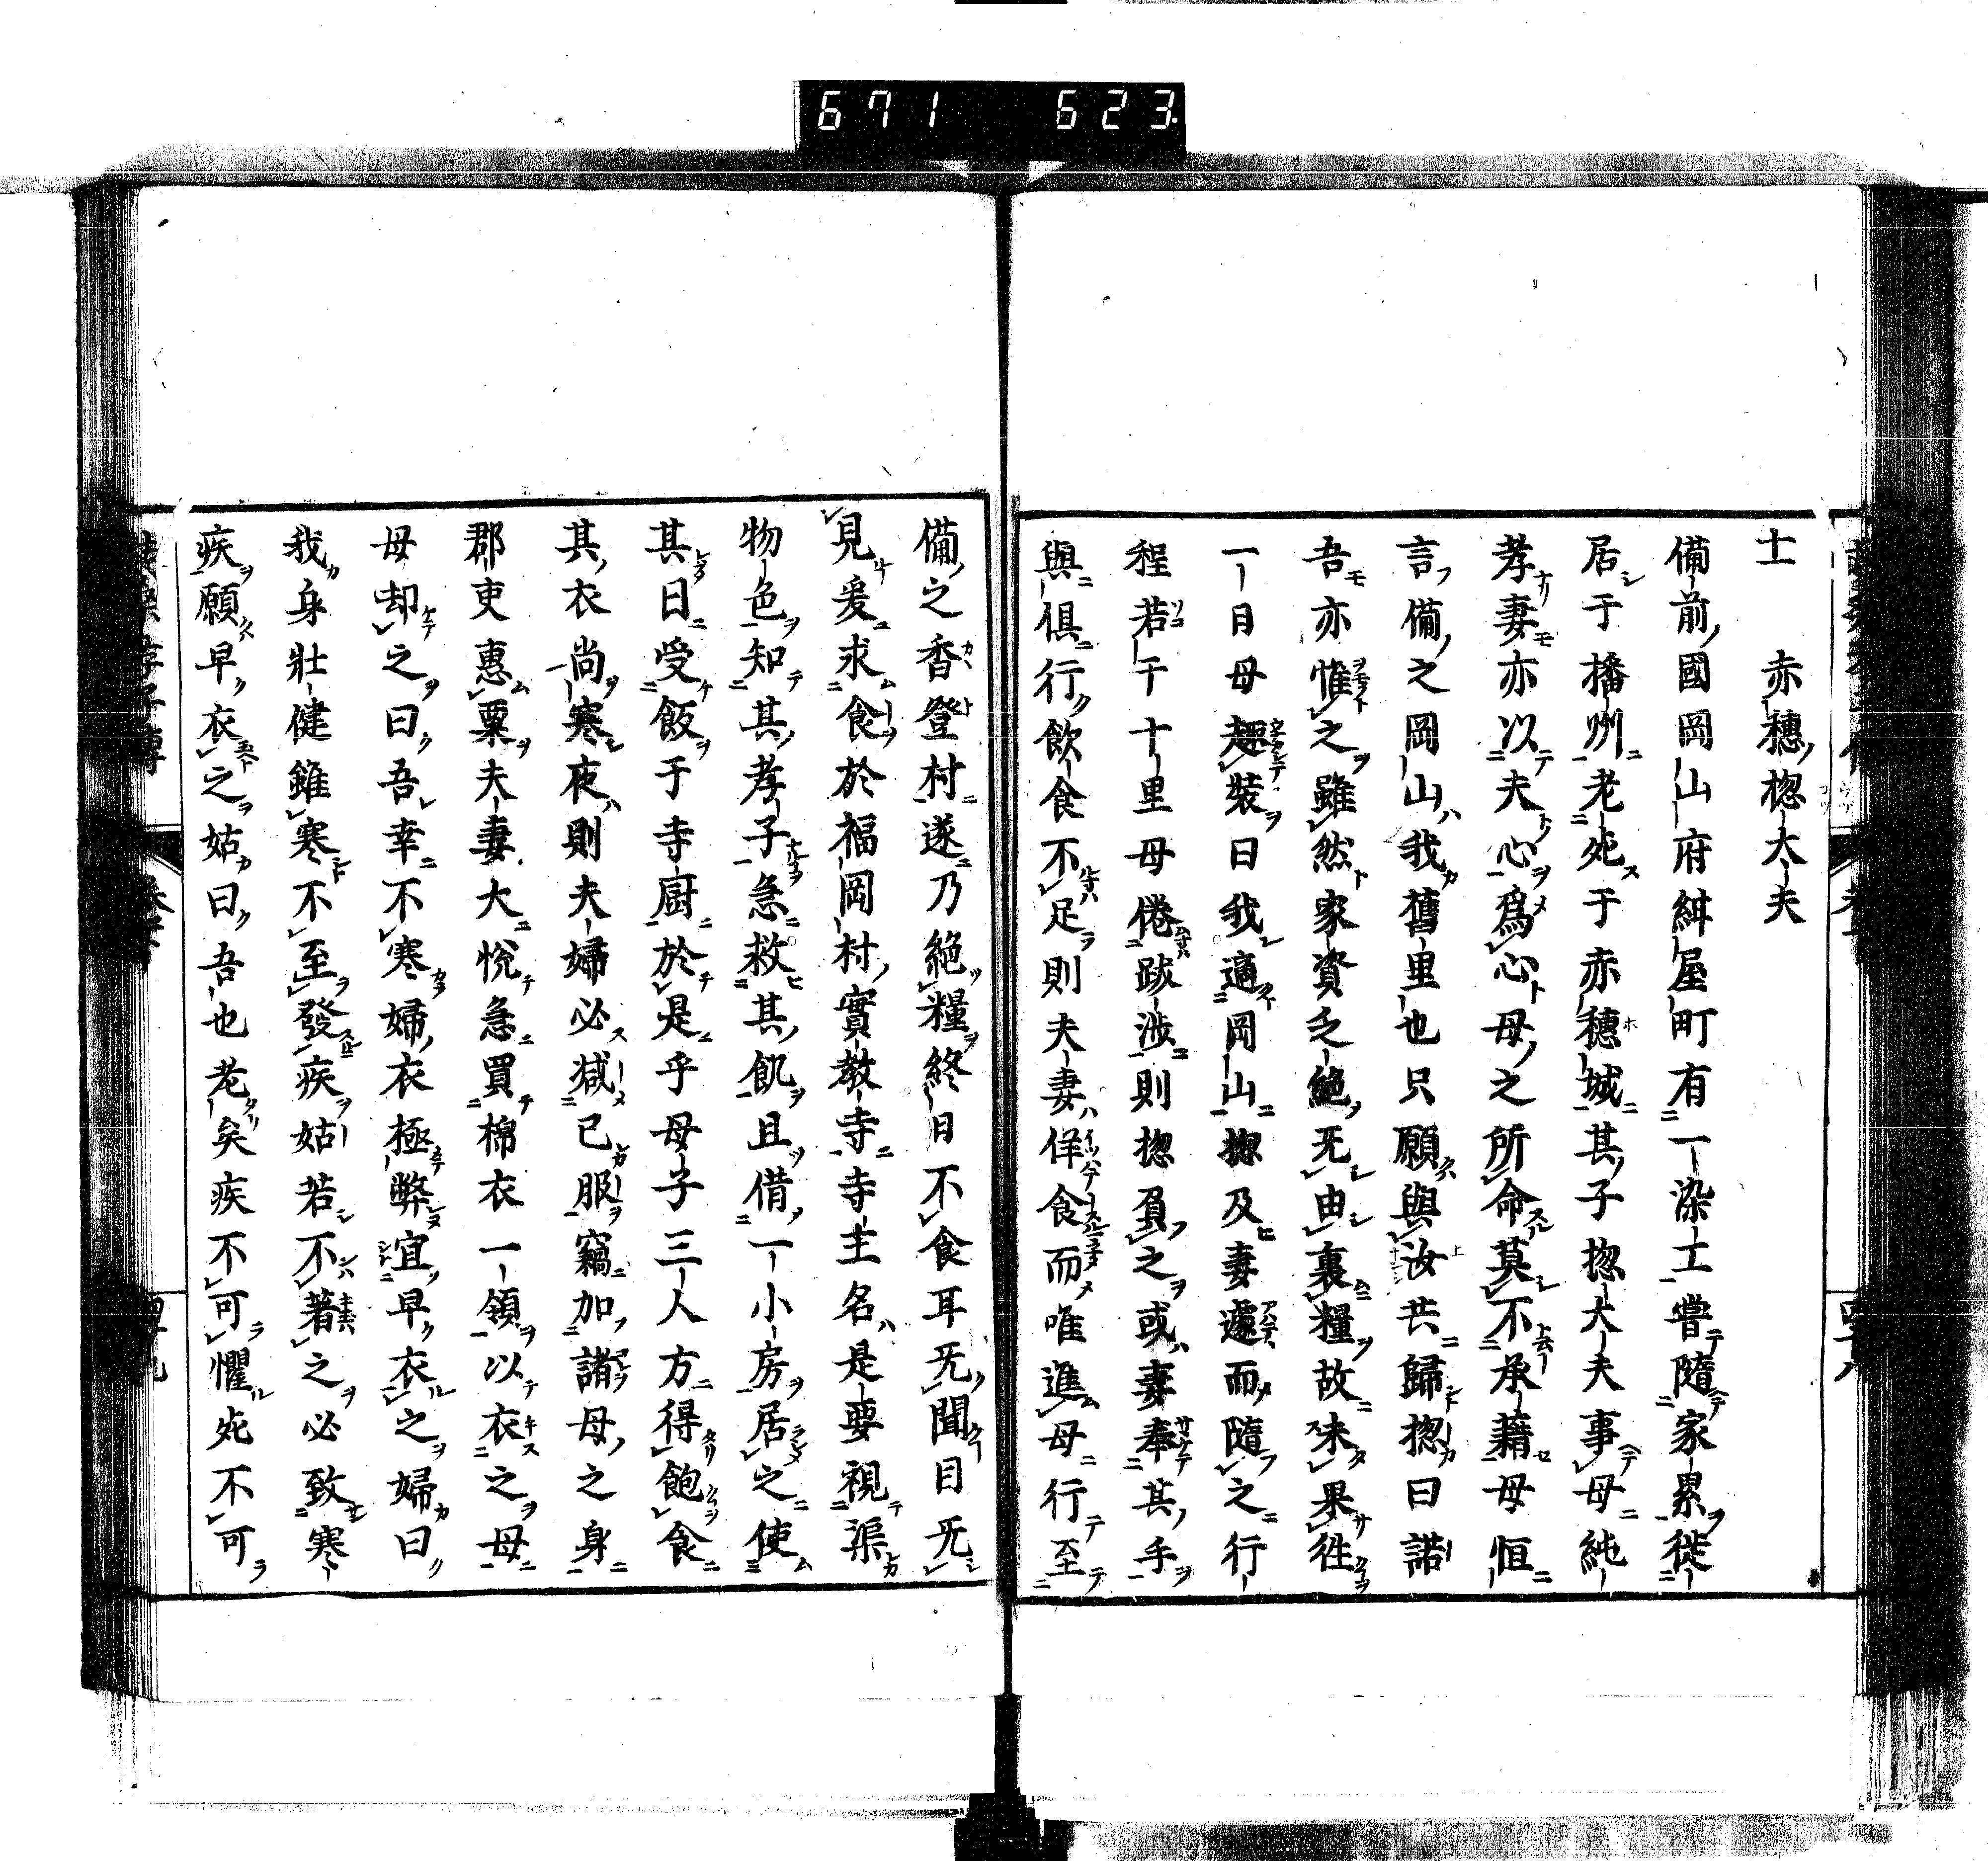 671 623
十 赤穗惣太夫
備前國岡山府紺屋町有一染工嘗隨家累徙
居于播州老死于赤穗城其子惣太夫事母純
孝妻亦以夫心爲心母之所命莫不承藉母恒
言備之岡山我舊里也只願與汝共歸惣曰諾
吾亦惟之雖然家資乏絶无由裹糧故未果徃
一日母趣裝曰我適岡山惣及妻遽而隨之行
程若干十里母倦跋涉則惣負之或妻奉其手
與俱行飲食不足則夫妻佯食而唯進母行至
備之香登村遂乃絶糧終日不食耳无聞目无
見爰求食於福岡村實教寺寺主名是要視渠
物色知其孝子急救其飢且借一小房居之使
其日受飯于寺厨於是乎母子三人方得飽食
其衣尚寒夜則夫婦必減己服竊加諸母之身
郡吏惠粟夫妻大悅急買棉衣一領以衣之母
母却之曰吾幸不寒婦衣極弊宜早衣之婦曰
我身壯健雖寒不至發疾姑若不著之必致寒
疾願早衣之姑曰吾也老矣疾不可懼死不可